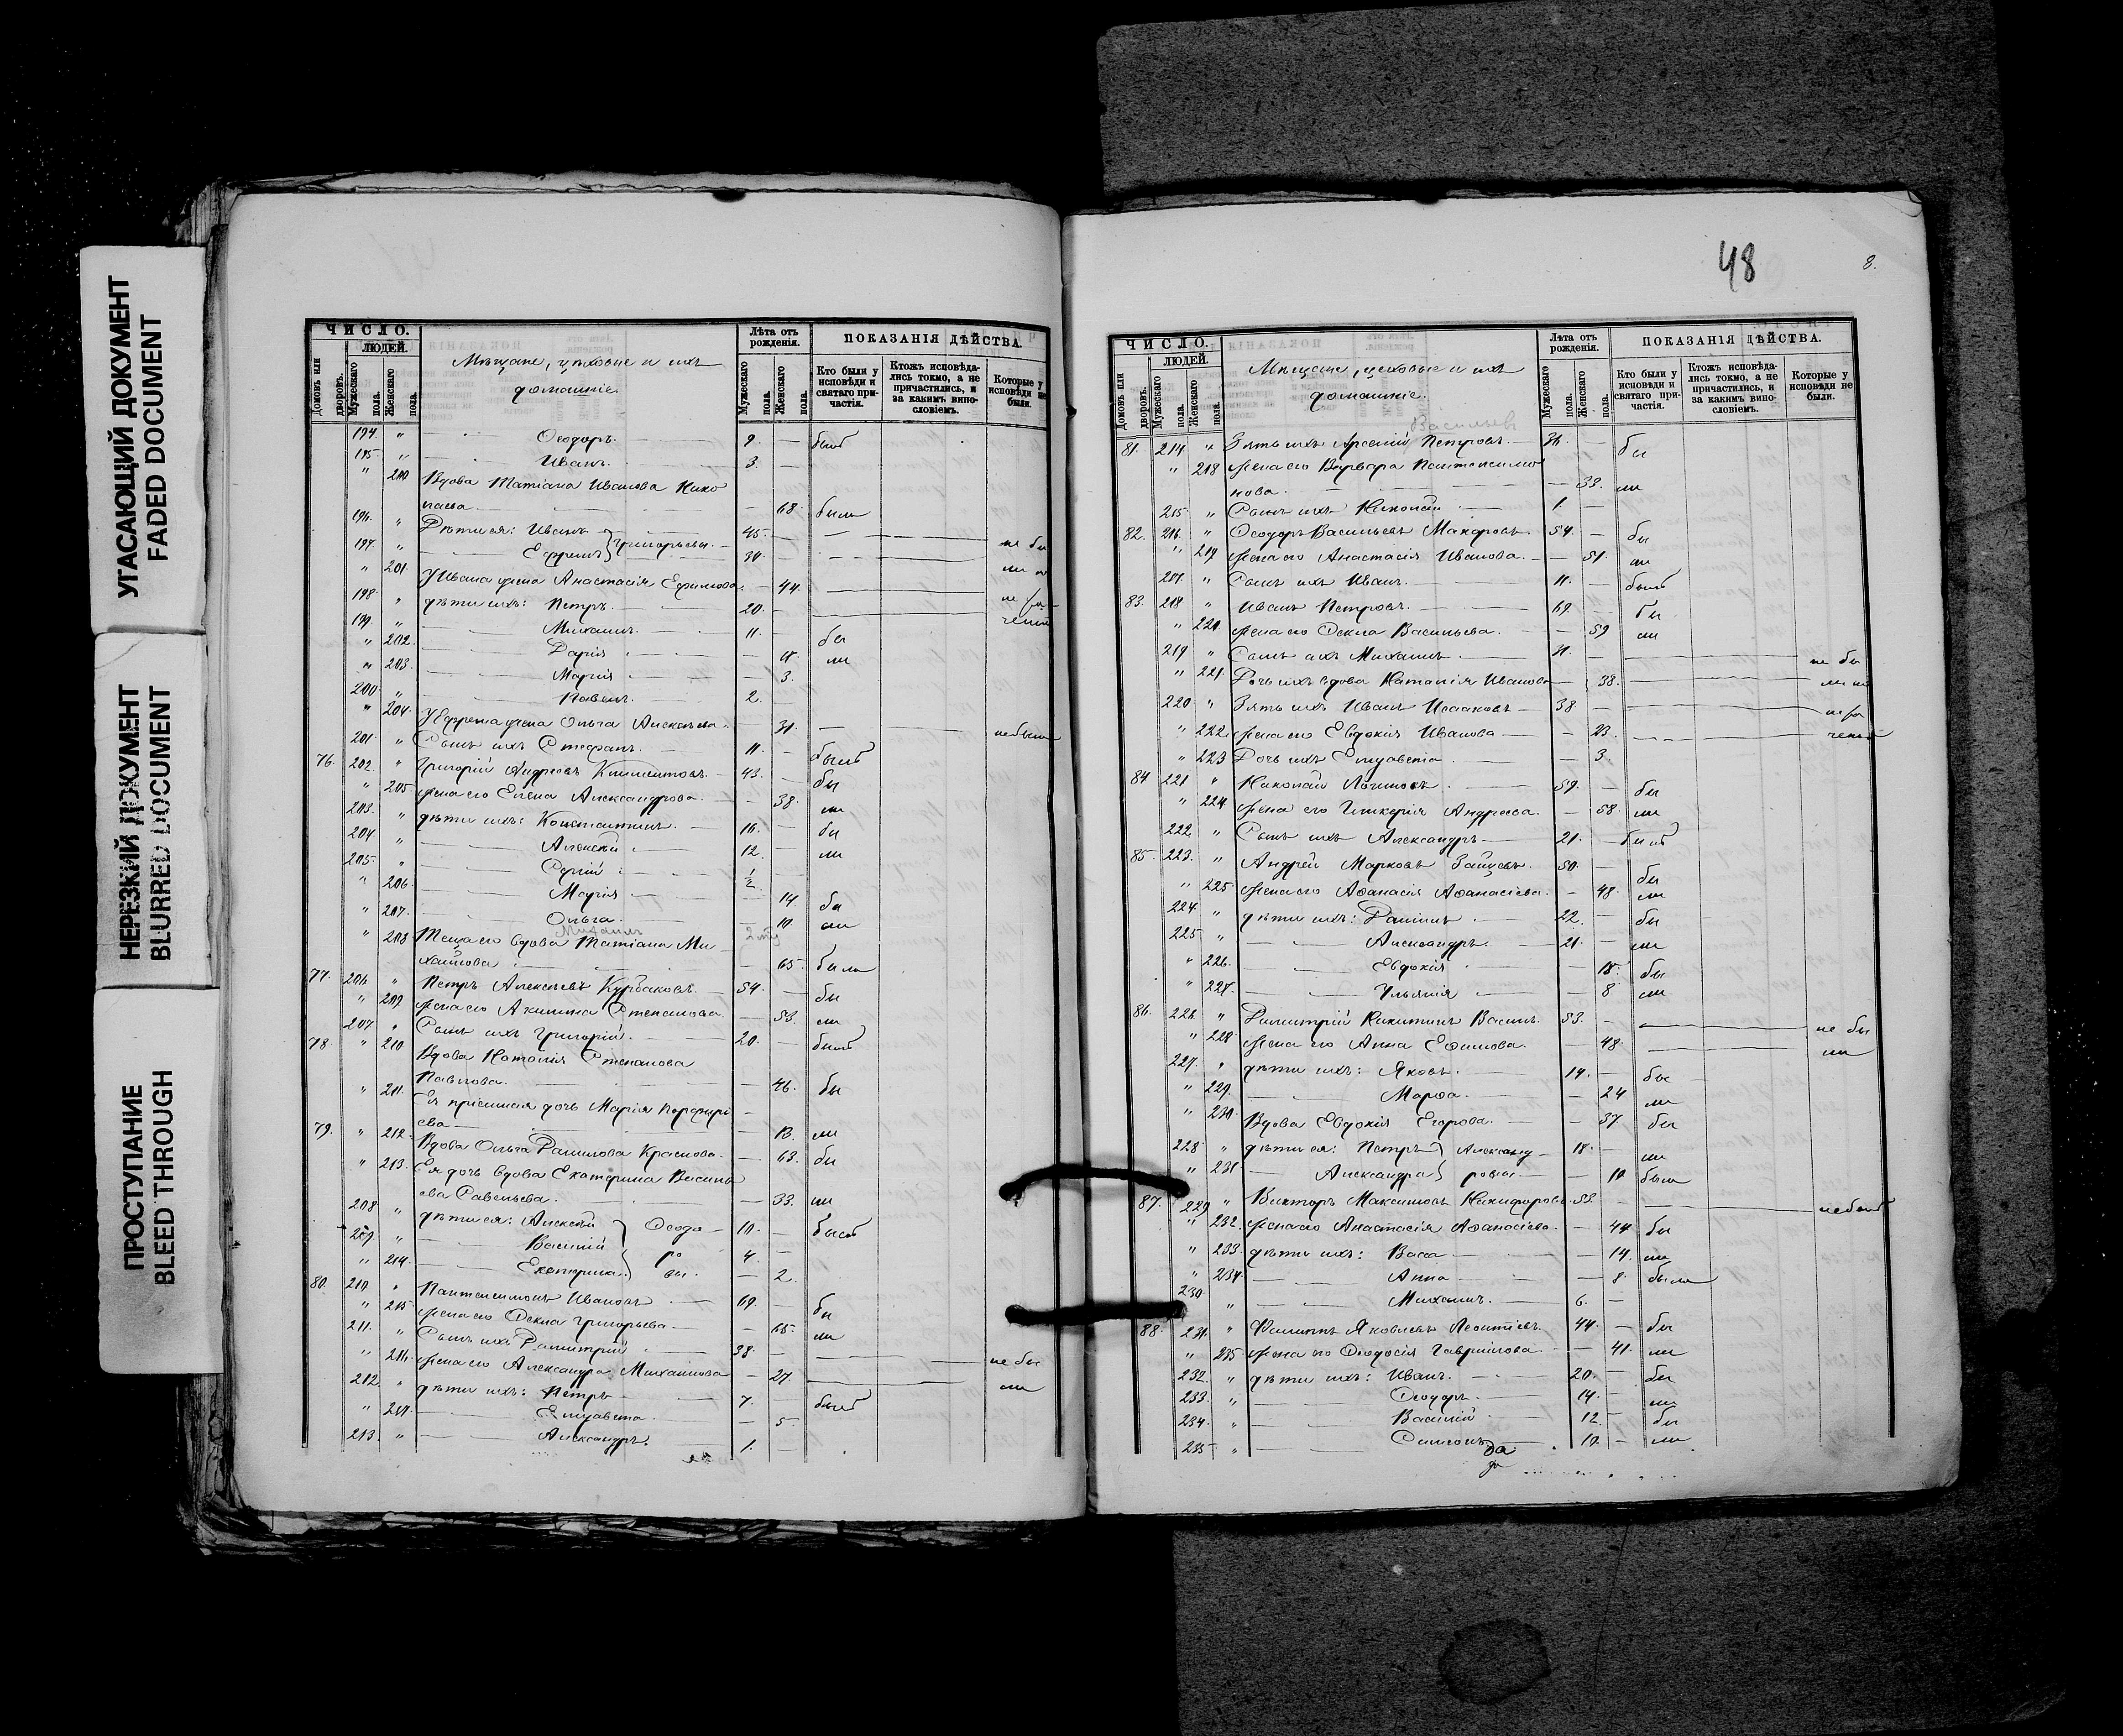 УГАСАЮЩИЙ ДОКУМЕНТ
FADED DOCUMENT
НЕРЕЗКИЙ ДОКУМЕНТ
BLURRED DOCUMENT
ПРОСТУПАНИЕ
BLEED THROUGH
ЧИСЛО.
ЛЮДЕЙ.
Домовъ или дворовъ.
Мужескаго пола.
Женскаго пола.
Мѣщане, цеховые и ихъ
домашніе
Лѣта отъ рожденія.
Мужескаго пола.
Женскаго пола.
ПОКАЗАНІЯ ДѢЙСТВА.
Кто были у исповѣди и святаго причастія.
Ктожъ исповѣдались токмо, а не причастились, и за какимъ винословіемъ.
Которые у исповѣди не были.
194. " Ѳеодоръ. 9. — былъ
195. " Иванъ. 3. —
" 200 Вдова Татіана Иванова Нико
лаева. — 68. была
196. " Дѣти ея: Иванъ 45. — не бы
197. " Ефремъ } Григорьевы. 34. — ли
" 201. У Ивана жена Анастасія Ефимова. — 44.
198. " дѣти ихъ: Петръ. 20. —
199. " Михаилъ. 11. — бы
" 202. Дарія — ли
" 203. Марія — 3.
200. " Павелъ. 2. —
" 204. У Ефрема жена Ольга Алексѣева. — 31. не были
201. " Сынъ ихъ Стефанъ. 11. — былъ
76. 202. " Григорій Андреевъ 43. — бы
" 205. жена его Елена Александрова. — 38. ли
203. " дѣти ихъ: Константинъ. 16. — бы
204. " Алексѣй 12. — ли
205. " Сергій 1/2 —
" 206. Марія — 14. бы
" 207. Ольга. — 10 ли
Михаилъ
" 208 Теща его вдова Татіана Ми
хайлова — 65. была
77. 206. " Петръ Алексѣевъ Курбаковъ. 54. — бы
" 209. жена его Акилина Степанова. — 53. ли
207. " Сынъ ихъ Григорій. 20. — былъ
78. " 210. Вдова Наталія Степанова
Павлова. — 46. бы
" 211. Ея пріемная дочь Марія Порфирі
ева — 13. ли
79. " 212. Вдова Ольга Данилова Краснова. — 63. бы
" 213. Ея дочь вдова Екатерина Василь
ева Савельева. — 33. ли
208 " дѣти ея: Алексѣй } Ѳеодо 10. — былъ
209 " Василій } ро 4. —
" 214. Екатерина } вы. — 2.
80. 210. " Пантелеимонъ Ивановъ 69. — бы
" 215 жена его Ѳекла Григорьева. — 65. ли
211. " Сынъ ихъ Димитрій 38. — не бы
" 216. жена его Александра Михаилова — 27 ли
212. " дѣти ихъ: Петръ 7. — былъ
" 217. Елизавета. — 5.
213. " Александръ. 1. —
48
8.
ЧИСЛО.
ЛЮДЕЙ.
Домовъ или дворовъ.
Мужескаго пола.
Женскаго пола.
Мѣщане, цеховые и ихъ
домашніе.
Лѣта отъ рожденія.
Мужескаго пола.
Женскаго пола.
ПОКАЗАНІЯ ДѢЙСТВА.
Кто были у исповѣди и святаго причастія.
Ктожъ исповѣдались токмо, а не причастились, и за какимъ винословіемъ.
Которые у исповѣди не были.
Васильевъ
81. 214. " Зять ихъ Арсеній Петровъ. — бы
" 218 жена его Варвара Пантелеимо
нова. — 33. ли
215. " Сынъ ихъ Николай 1. —
82. 216. " Ѳеодоръ Васильевъ Макаровъ 54. — бы
" 219 жена его Анастасія Иванова. — 51. ли
217. " Сынъ ихъ Иванъ. 11. — былъ
83. 218 " Иванъ Петровъ. 69. — бы
" 220. жена его Ѳекла Васильева. — 59 ли
219 " Сынъ ихъ Михаилъ 31. — не бы
" 221. Дочь ихъ вдова Наталія Иванова — 38. ли
220 " Зять ихъ Иванъ Исааковъ 38 —
" 222. жена его Евдокія Иванова — 23.
" 223 Дочь ихъ Елизавета — 3.
84. 221 " Николай Логиновъ 59. — бы
" 224. жена его Гликерія Андреева. — 58. ли
222 " Сынъ ихъ Александръ 21. — былъ
85. 223. " Андрей Марковъ Зайцевъ. 50. — бы
" 225. жена его Аѳанасія Аѳанасіева. — 48. ли
224. " дѣти ихъ: Даніилъ 22. — бы
225. " Александръ. 21. — ли
" 226. Евдокія — 18. бы
" 227. Ульянія — 8 ли
86. 226. " Димитрій Никитинъ Василь. 53. — не бы
" 228. жена его Анна Ефимова. — 48. ли
227. " дѣти ихъ: Яковъ. 14. — бы
" 229. Марѳа. — 24 ли
" 230. Вдова Евдокія Егорова. — 37. бы
228 " дѣти ея: Петръ } Александ 18. — ли
" 231 Александра } ровы. — 10 была
87. 229 " Викторъ Максимовъ Никифоровъ. 53. — не былъ
" 232. жена его Анастасія Аѳанасіева. — 44. бы
" 233. дѣти ихъ: Васса — 14. ли
" 234. Анна — 8. была
230. " Михаилъ. 6. —
88. 231. " Филиппъ Яковлевъ Леонтіевъ. 44. — бы
" 235 жена его Ѳеодосія Гавриилова. — 41. ли
232. " дѣти ихъ: Иванъ. 20. — бы
233. " Ѳеодоръ. 14. — ли
234. " Василій 12. — бы
235 " Симеонъ 10. — ли